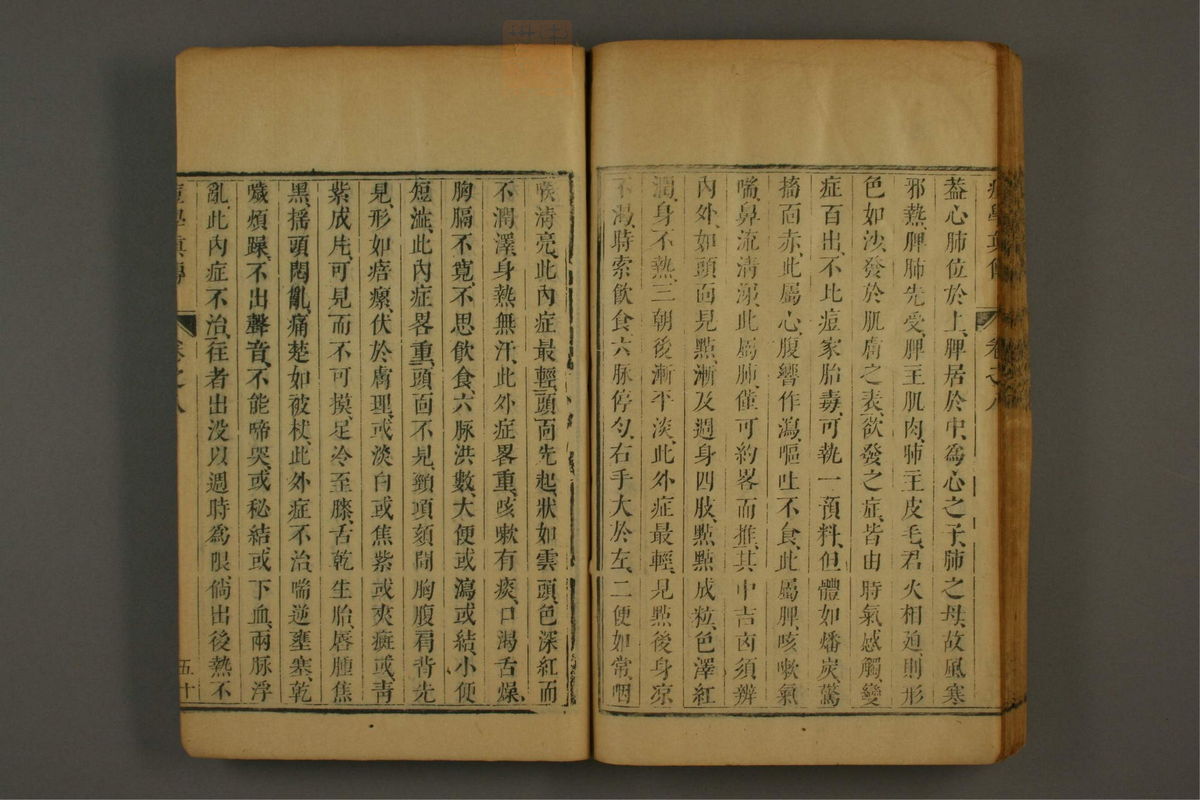 痘學真傳　卷之八
蓋心肺位於上、脾居於中、爲心之子、肺之母、故風寒
邪熱、脾肺先受、脾主肌肉、肺主皮毛、君火相迫、則形
色如沙、發於肌膚之表、欲發之症、皆由時氣感觸、變
症百出、不比痘家胎毒、可執一預料、但體如燔炭、驚
搐面赤、此屬心、腹響作瀉、嘔吐不食、此屬脾、咳嗽氣
喘、鼻流清涕、此屬肺、僅可約畧而推、其中吉凶須辨
內外、如頭面見點、漸及週身四肢、點點成粒、色澤紅
潤、身不熱、三朝後漸平淡、此外症最輕、見點後身凉
不渴、時索飲食、六脉停勻、右手大於左、二便如常、咽
喉清亮、此內症最輕、頭面先起、狀如雲頭、色深紅而
不潤澤、身熱無汗、此外症畧重、咳嗽有痰、口渴舌燥、
胸膈不寬、不思飲食、六脉洪數、大便或瀉或結、小便
短澁、此內症畧重、頭面不見、頸項頦間胸腹肩背先
見、形如㾦瘰、伏於膚理、或淡白或焦紫或夾癍或青
紫成片、可見而不可摸、足冷至膝、舌乾生胎、唇腫焦
黑、揺頭悶亂、痛楚如被杖、此外症不治、喘逆壅塞、乾
噦煩躁、不出聲音、不能啼哭、或秘結或下血、兩脉浮
亂、此內症不治、往者出没以週時爲限、倘出後熱不
痘學真傳　卷之八　五十